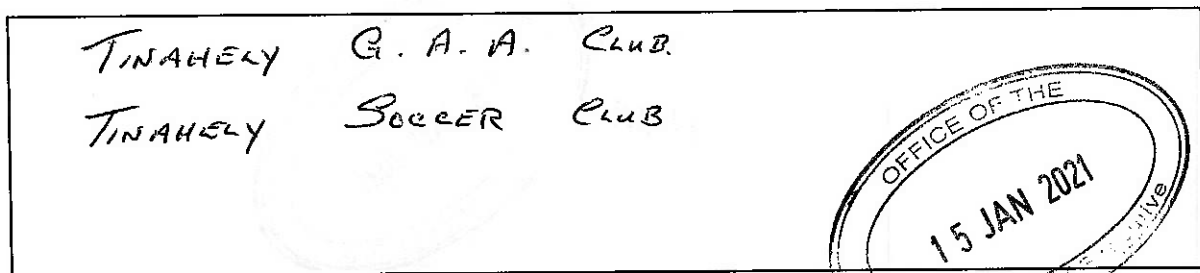 TINAHELY G. A. A. CLUB.
TINAHELY SOCCER CLUB
OFFICE OF THE
15 JAN 2021